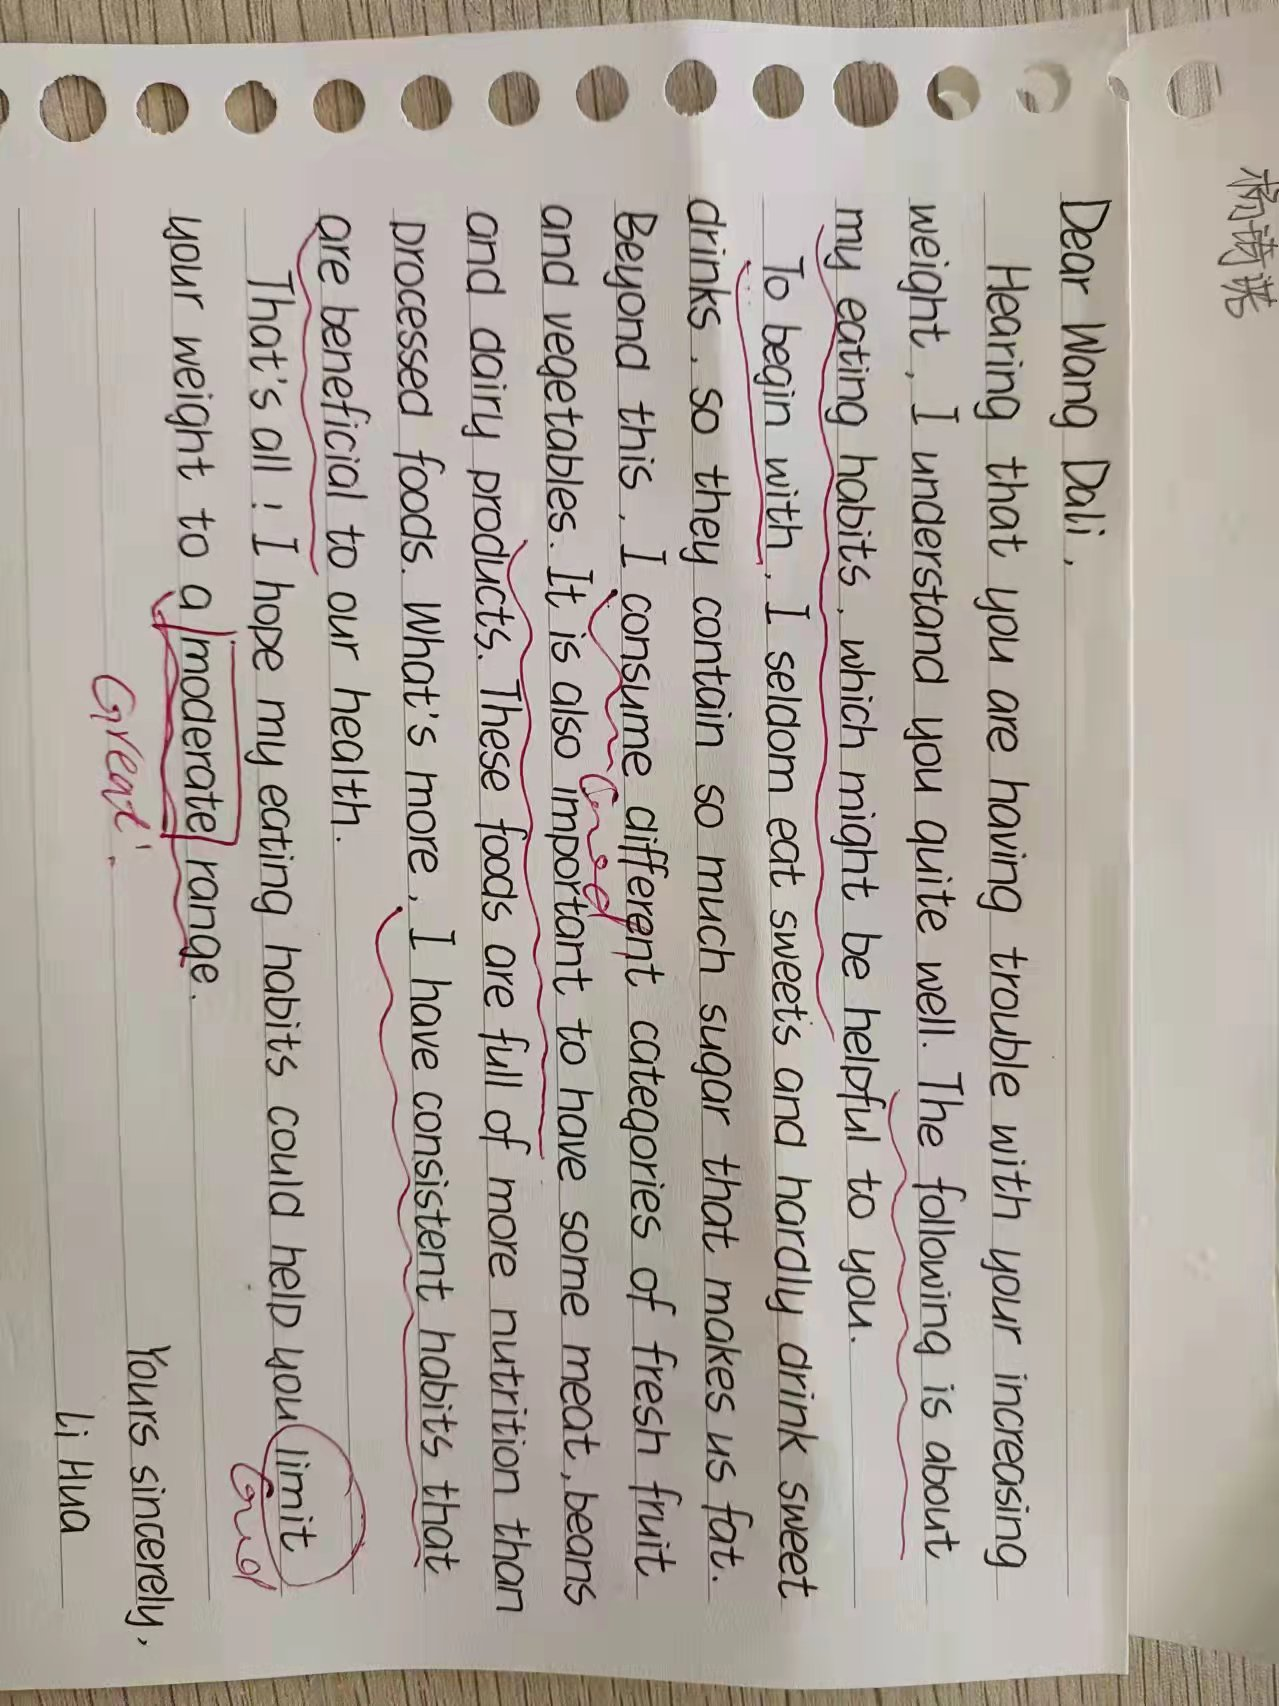 杨诗涵
Dear Wang Dali,
Hearing that you are having trouble with your increasing
weight, I understand you quite well. The following is about
my eating habits, which might be helpful to you.
To begin with, I seldom eat sweets and hardly drink sweet
drinks, so they contain so much sugar that makes us fat.
Beyond this, I consume different categories of fresh fruit
Good
and vegetables. It is also important to have some meat, beans
and dairy products. These foods are full of more nutrition than
processed foods. What's more, I have consistent habits that
are beneficial to our health.
That's all! I hope my eating habits could help you limit
Good
your weight to a moderate range.
Great!
Yours sincerely,
Li Hua